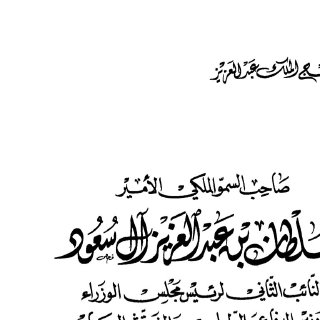 الملك عبدالعزيز
صاحب السمو الملكي الأمير
سلطان بن عبدالعزيز آل سعود
النائب الثاني لرئيس مجلس الوزراء